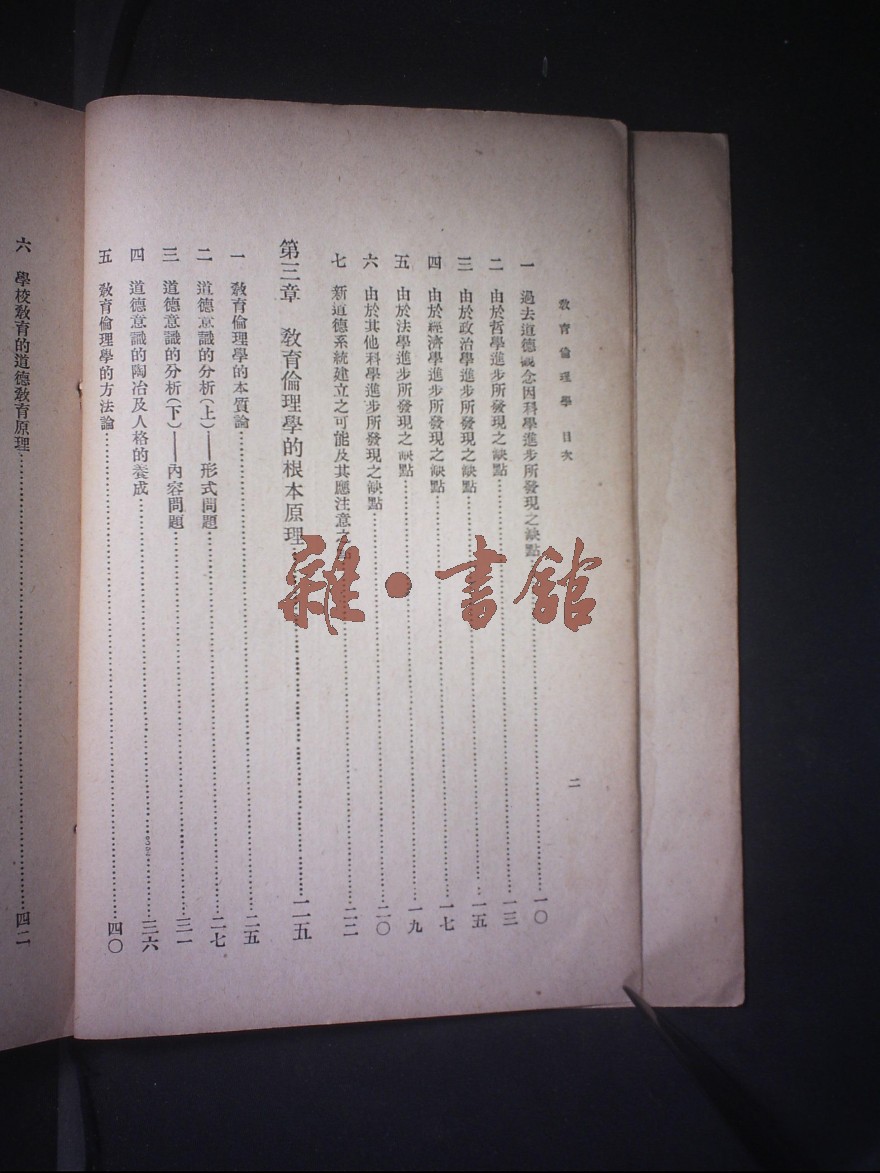 教育倫理學 目次
二
一 過去道德觀念因科學進步所發現之缺點……一〇
二 由於哲學進步所發現之缺點……一三
三 由於政治學進步所發現之缺點……一五
四 由於經濟學進步所發現之缺點……一七
五 由於法學進步所發現之缺點……一九
六 由於其他科學進步所發現之缺點……二〇
七 新道德系統建立之可能及其應注意之……二二
第三章 教育倫理學的根本原理……二五
一 教育倫理學的本質論……二五
二 道德意識的分析(上)——形式問題……二七
三 道德意識的分析(下)——內容問題……三一
四 道德意識的陶冶及人格的養成……三六
五 教育倫理學的方法論……四〇
六 學校教育的道德教育原理……四二
雜·書館